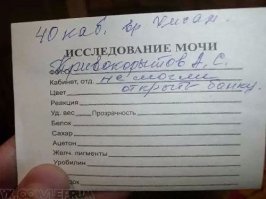 40 каб. вр
ИССЛЕДОВАНИЕ МОЧИ
Кривокорытов А. С.
Кабинет, отд. не смогли
Цвет открыть банку.
Реакция
Уд. вес Прозрачность
Белок
Сахар
Ацетон
Желч. пигменты
Уробилин